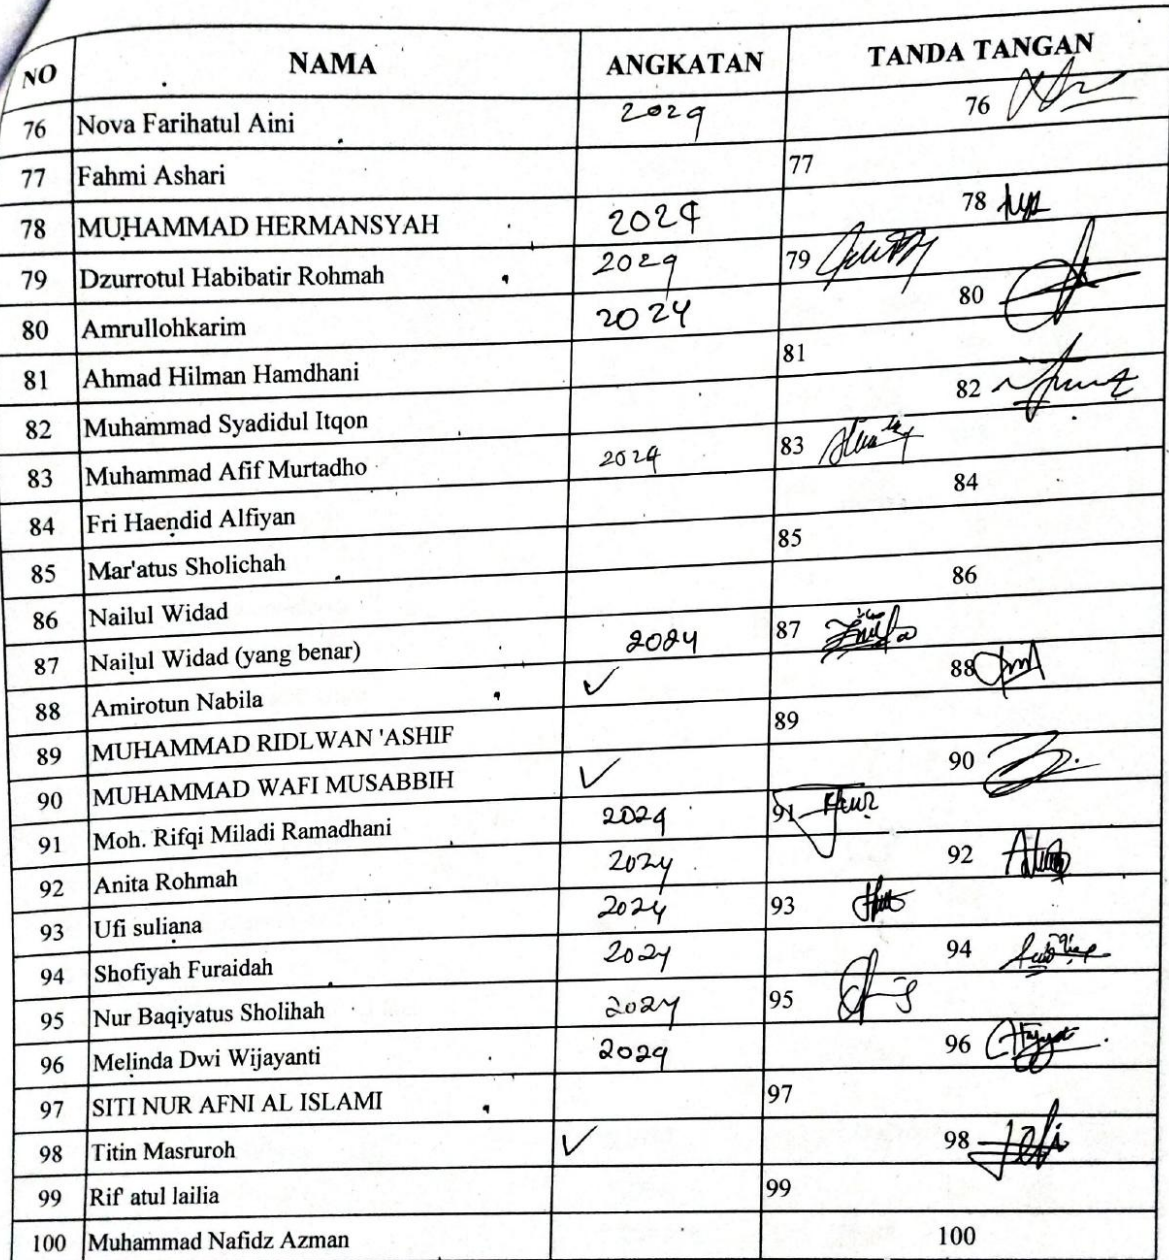 NO NAMA ANGKATAN TANDA TANGAN
76 Nova Farihatul Aini 2024 76
77 Fahmi Ashari 77
78 MUHAMMAD HERMANSYAH 2024 78
79 Dzurrotul Habibatir Rohmah 2024 79
80 Amrullohkarim 2024 80
81 Ahmad Hilman Hamdhani 81
82 Muhammad Syadidul Itqon 82
83 Muhammad Afif Murtadho 2024 83
84 Fri Haendid Alfiyan 84
85 Mar'atus Sholichah 85
86 Nailul Widad 86
87 Nailul Widad (yang benar) 2024 87
88 Amirotun Nabila ✓ 88
89 MUHAMMAD RIDLWAN 'ASHIF 89
90 MUHAMMAD WAFI MUSABBIH ✓ 90
91 Moh. Rifqi Miladi Ramadhani 2024 91
92 Anita Rohmah 2024 92
93 Ufi suliana 2024 93
94 Shofiyah Furaidah 2024 94
95 Nur Baqiyatus Sholihah 2024 95
96 Melinda Dwi Wijayanti 2024 96
97 SITI NUR AFNI AL ISLAMI 97
98 Titin Masruroh ✓ 98
99 Rif' atul lailia 99
100 Muhammad Nafidz Azman 100